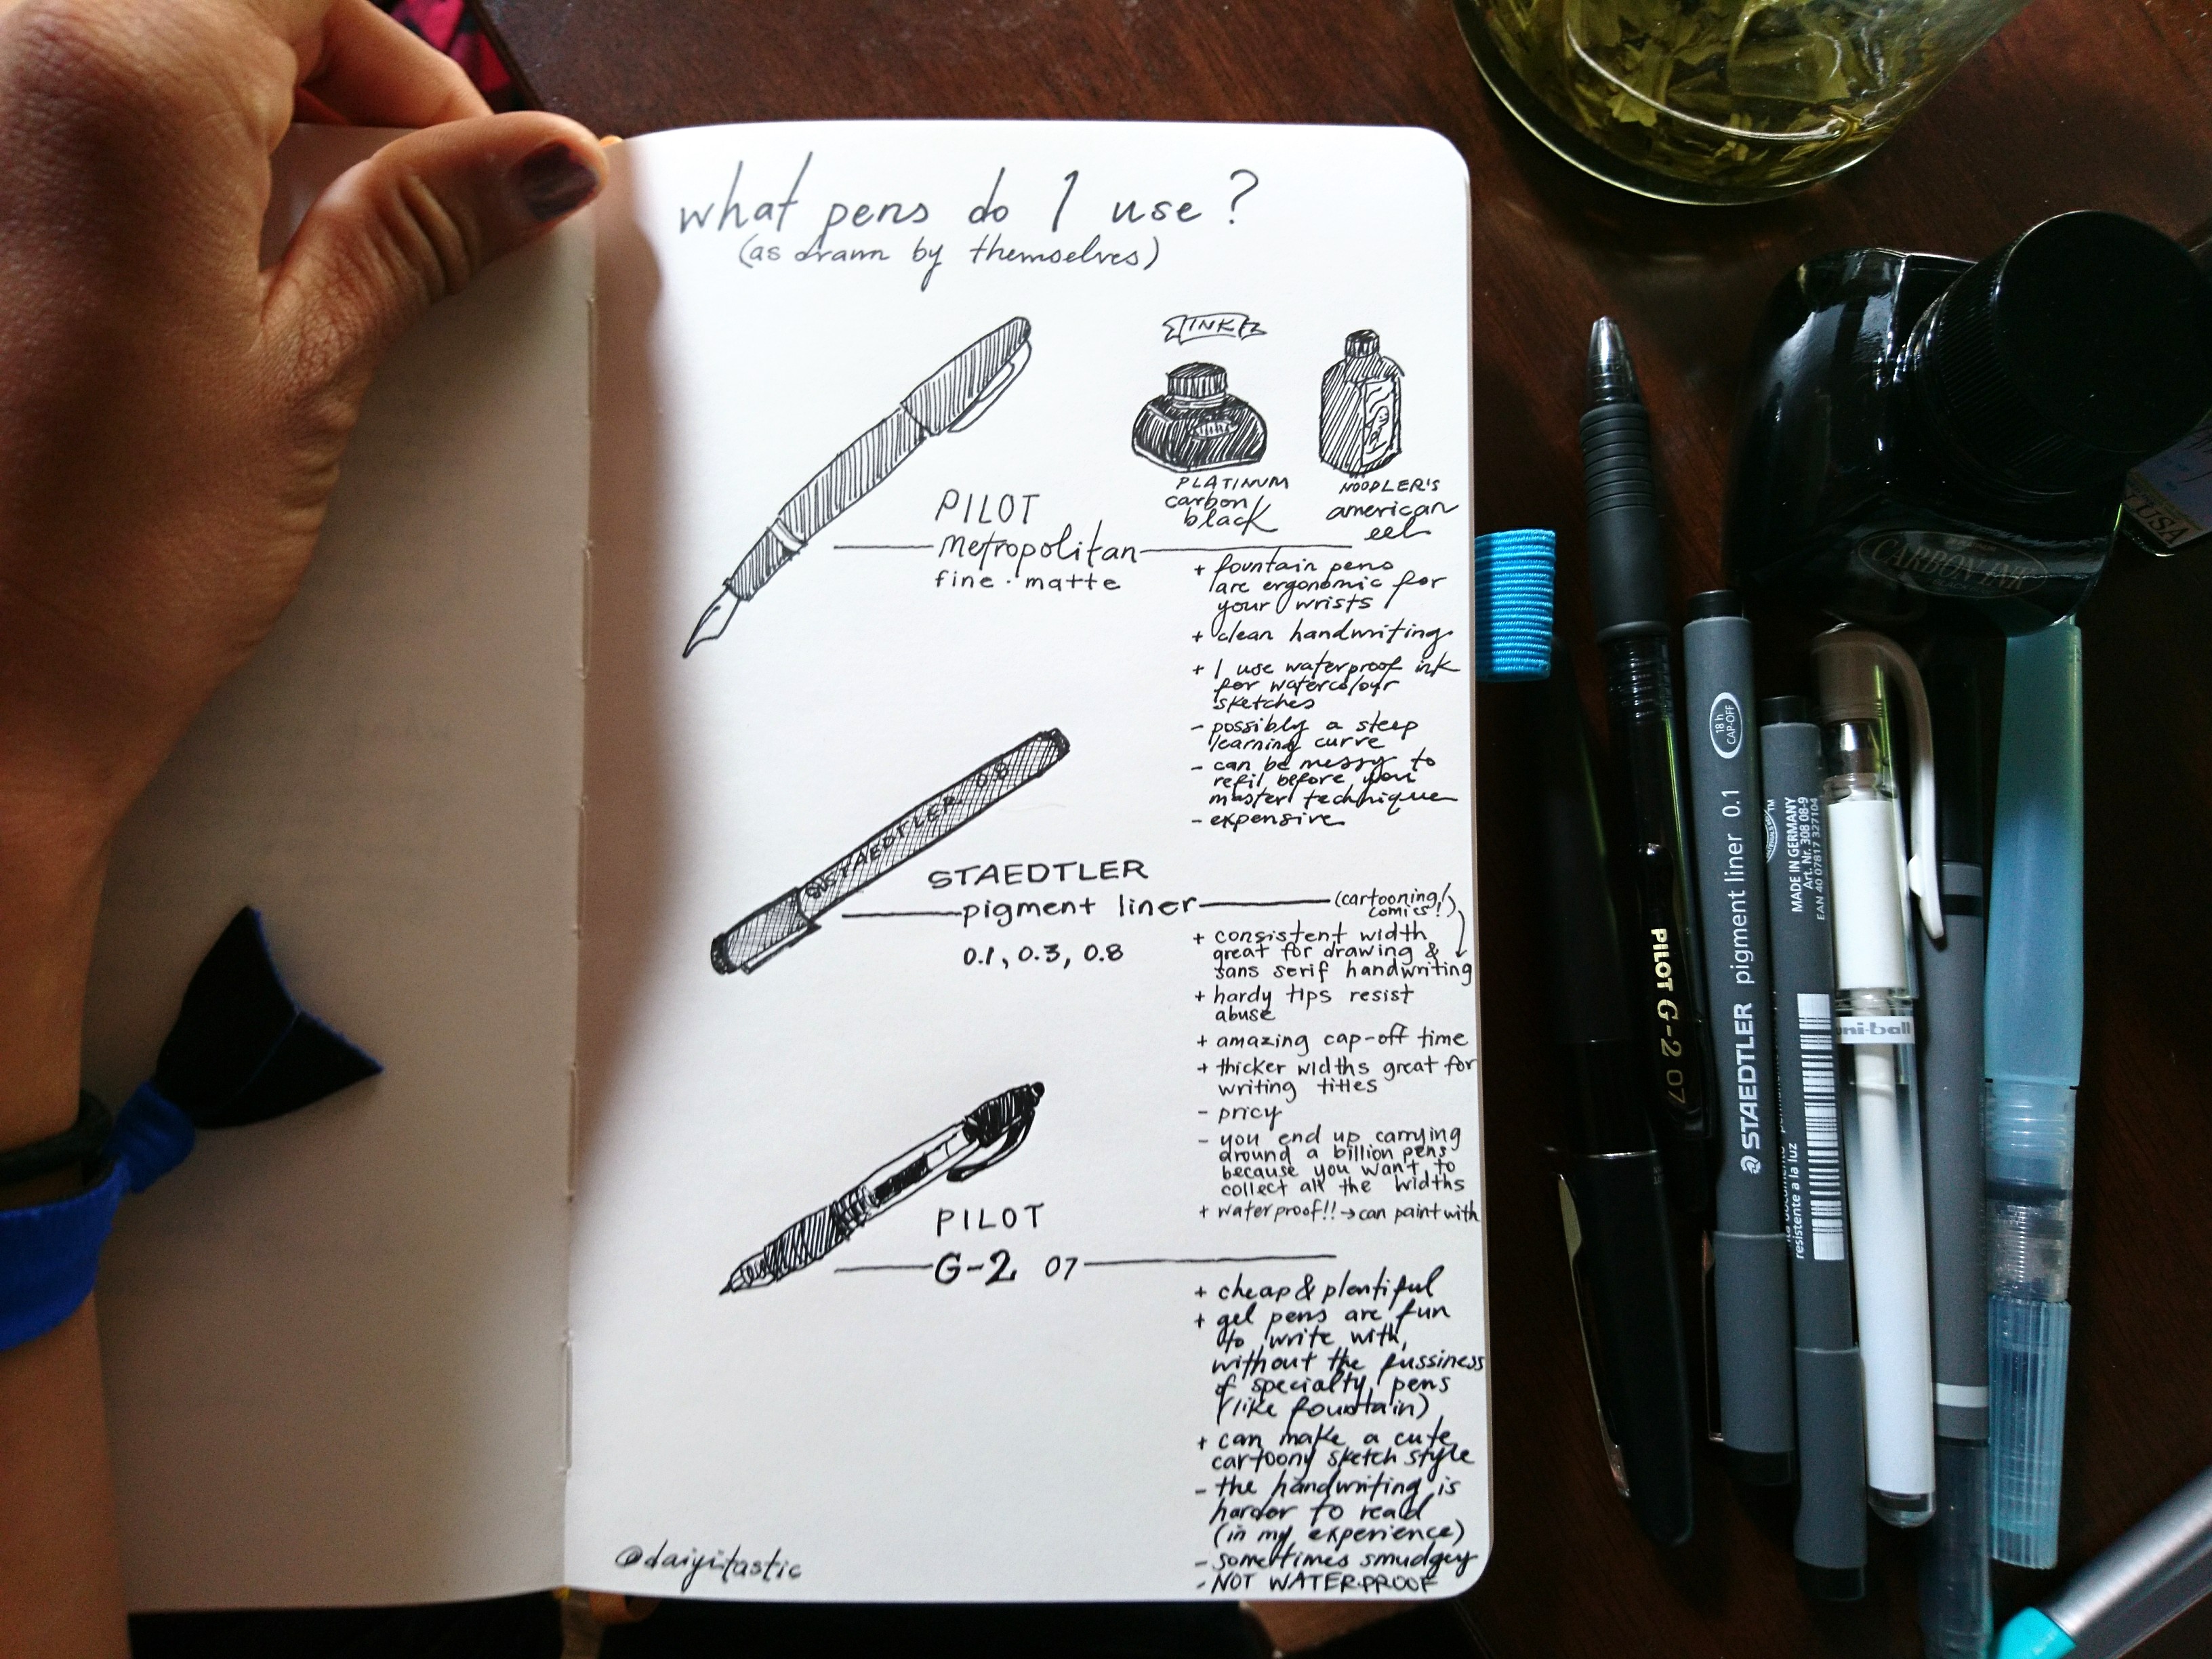 what pens do I use?
(as drawn by themselves)
INK
PLATINUM
carbon
black
NOODLER'S
american
eel
PILOT
Metropolitan
fine · matte
+ fountain pens
are ergonomic for
your wrists
+ clean handwriting
+ I use waterproof ink
for watercolour
sketches
- possibly a steep
learning curve
- can be messy to
refil before you
master technique
- expensive
STAEDTLER 0.8
STAEDTLER
pigment liner
0.1, 0.3, 0.8
(cartooning/
comics!)
+ consistent width
great for drawing &
sans serif handwriting
+ hardy tips resist
abuse
+ amazing cap-off time
+ thicker widths great for
writing titles
- pricy
- you end up carrying
around a billion pens
because you want to
collect all the widths
+ waterproof!! → can paint with
PILOT
G-2 07
+ cheap & plentiful
+ gel pens are fun
to write with,
without the fussiness
of specialty pens
(like fountain)
+ can make a cute
cartoony sketch style
- the handwriting is
harder to read
(in my experience)
- sometimes smudgey
- NOT WATERPROOF
@daiyitastic
CARBON INK
USA
PILOT G-2 07
18 h
CAP-OFF
STAEDTLER pigment liner 0.1
MADE IN GERMANY
Art. Nr. 308 08-9
EAN 40 07817 327104
resistente a la luz
uni-ball